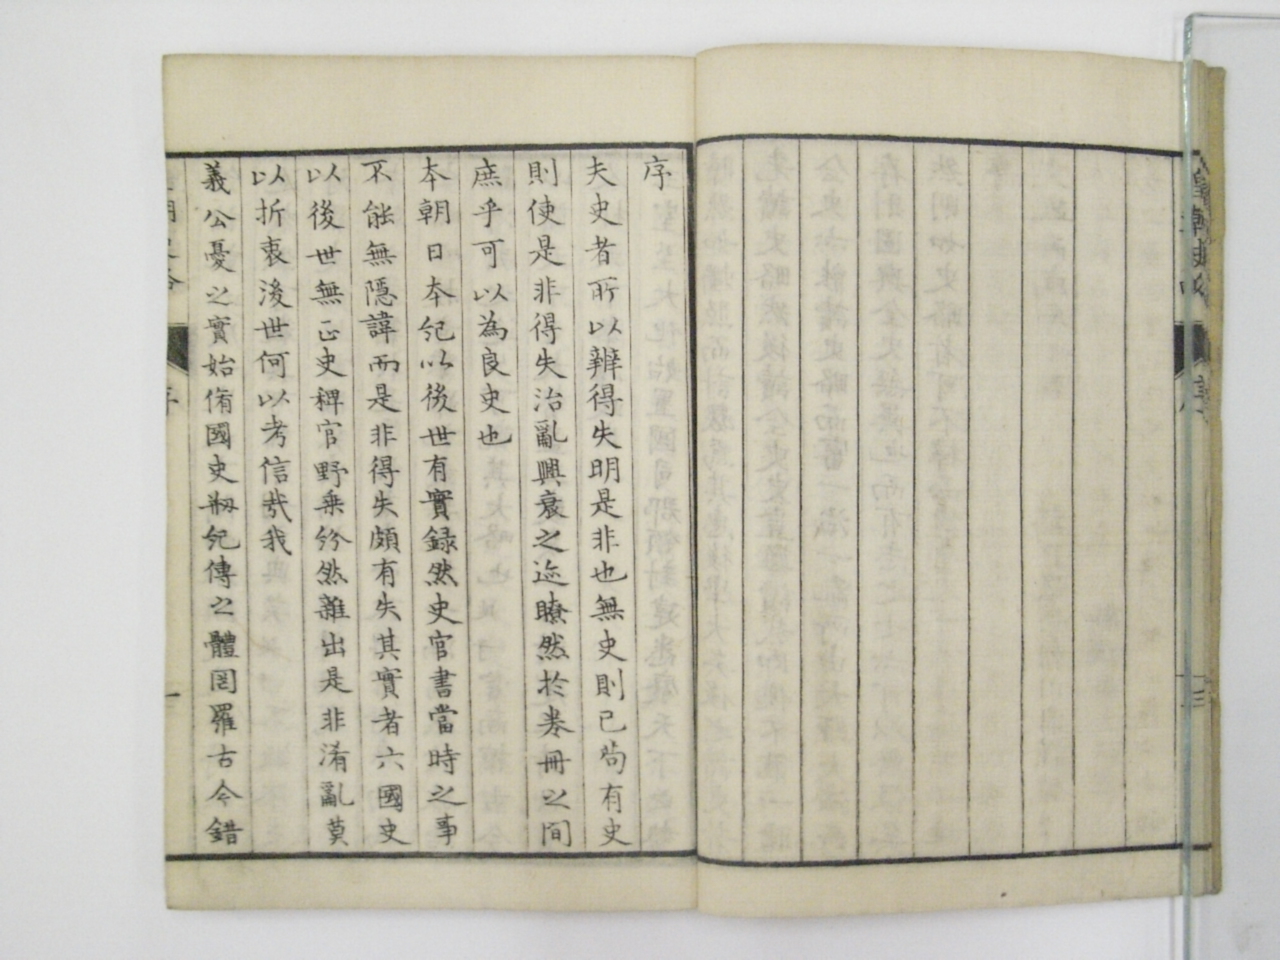 皇朝史略
序
三
序
夫史者所以辨得失明是非也無史則已苟有史
則使是非得失治亂興衰之迹瞭然於卷冊之間
庶乎可以為良史也
本朝日本紀以後世有實録然史官書當時之事
不能無隱諱而是非得失頗有失其實者六國史
以後世無正史稗官野乗紛然雜出是非淆亂莫
以折衷後世何以考信哉我
義公憂之實始脩國史刱紀傳之體罔羅古今錯
朝史略
序
一